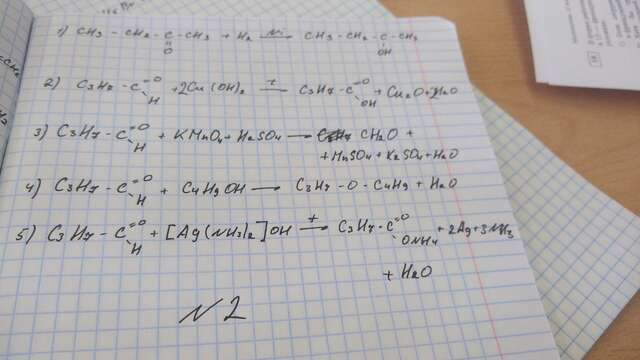 1) CH3 - CH2 - C - CH3 + H2 Ni→ CH3 - CH2 - C - CH3
=O OH
2) C3H7 - C =O H + 2Cu(OH)2 t→ C3H7 - C =O OH + Cu2O + 2H2O
3) C3H7 - C =O H + KMnO4 + H2SO4 → CH2O +
+ MnSO4 + K2SO4 + H2O
4) C3H7 - C =O H + C4H9OH → C3H7 - O - C4H9 + H2O
5) C3H7 - C =O H + [Ag(NH3)2]OH t→ C3H7 - C =O ONH4 + 2Ag + 3NH3
+ H2O
N2